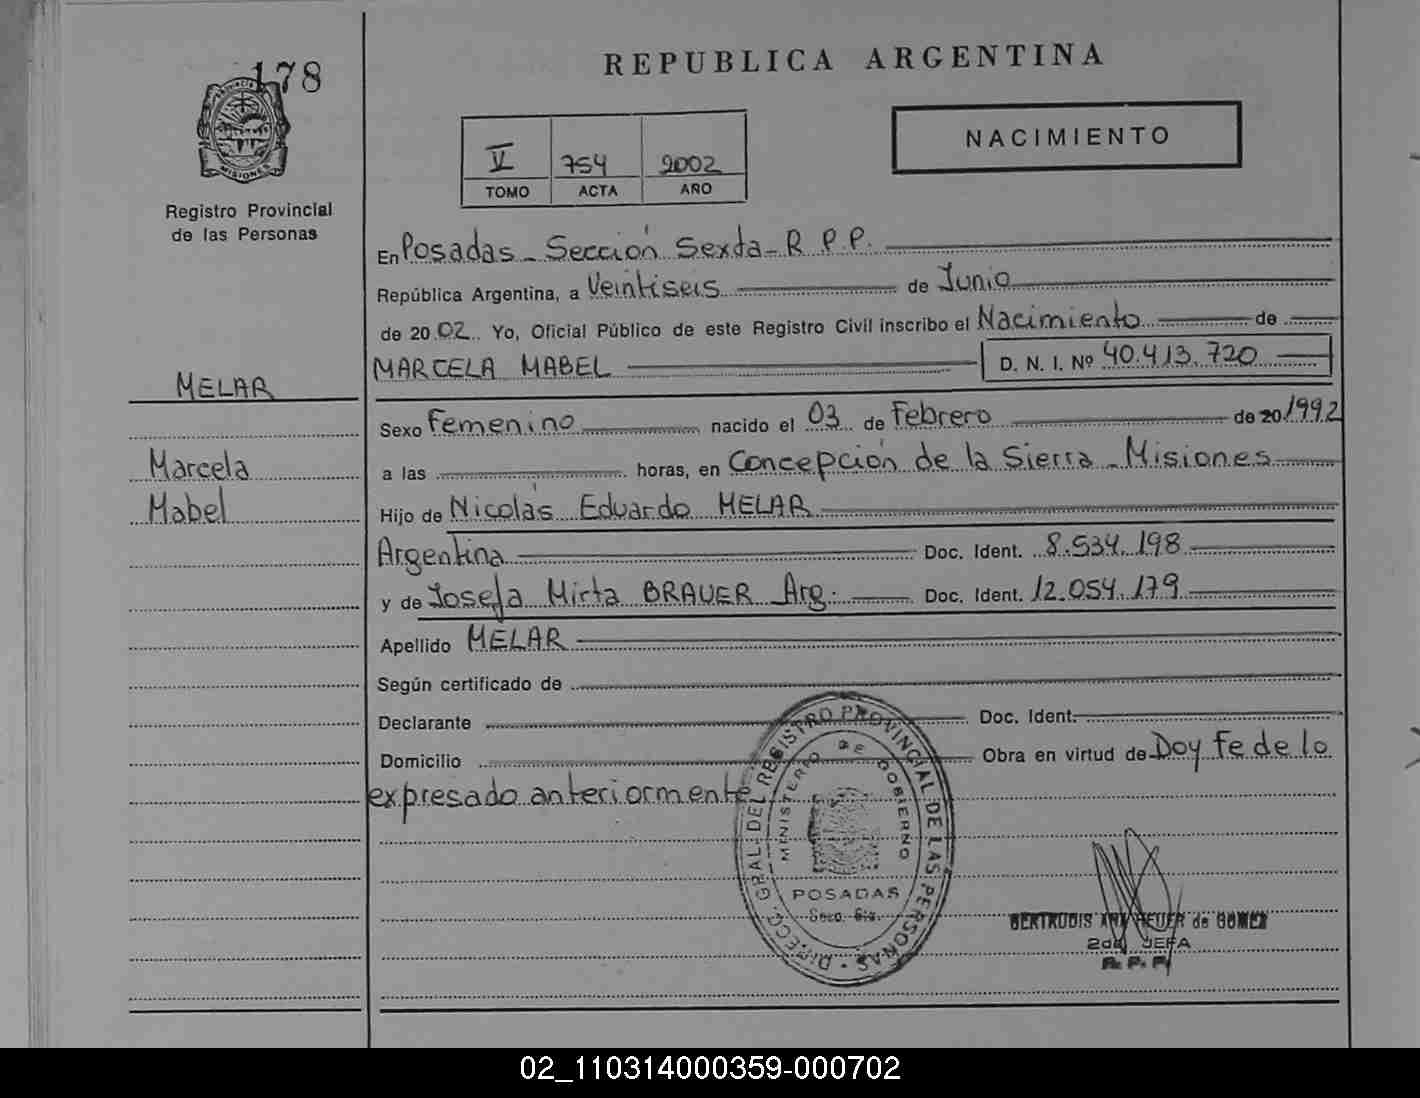 178
PROVINCIA DE
MISIONES
Registro Provincial
de las Personas
MELAR
Marcela
Mabel
REPUBLICA ARGENTINA
V 754 2002
TOMO ACTA AÑO
NACIMIENTO
En Posadas - Sección Sexta - R.P.P.
República Argentina, a Veintiseis de Junio
de 2002 Yo, Oficial Público de este Registro Civil inscribo el Nacimiento de
MARCELA MABEL D. N. I. Nº 40.413.720
Sexo Femenino nacido el 03 de Febrero de 20 1992
a las horas, en Concepción de la Sierra - Misiones
Hijo de Nicolás Eduardo MELAR
Argentina Doc. Ident. 8.534.198
y de Josefa Mirta BRAUER Arg. Doc. Ident. 12.054.179
Apellido MELAR
Según certificado de
Declarante Doc. Ident.
Domicilio Obra en virtud de Doy Fe de lo
expresado anteriormente
DIRECC. GRAL. DEL REGISTRO PROVINCIAL DE LAS PERSONAS
MINISTERIO DE GOBIERNO
POSADAS
Secc. 6ta.
GERTRUDIS ANA HEUER de GOMEZ
2da JEFA
R. P. P.
02_110314000359-000702